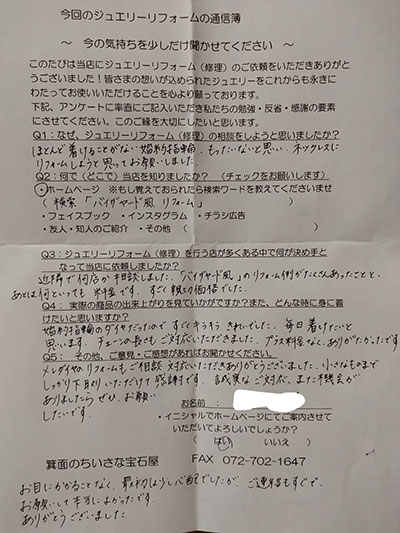 今回のジュエリーリフォームの通信簿
～ 今の気持ちを少しだけ聞かせてください ～
このたびは当店にジュエリーリフォーム（修理）のご依頼をいただきありがと
うございました！皆さまの想いが込められたジュエリーをこれからも永きに
わたってお使いいただけることを心より願っております。
下記、アンケートに率直にご記入いただき私たちの勉強・反省・感謝の要素
にさせてください。このご縁を大切にしたいと思います。
Q1：なぜ、ジュエリーリフォーム（修理）の相談をしようと思いましたか？
ほとんど着けることがない婚約指輪、もったいないと思い、ネックレスに
リフォームしようと思ってお願いしました。
Q2：何で（どこで）当店を知りましたか？ （チェックをお願いします）
・ホームページ ※もし覚えておられたら検索ワードを教えてくださいませ
（ 検索「バイザヤード風 リフォーム」 ）
・フェイスブック ・インスタグラム ・チラシ広告
・友人・知人のご紹介 ・その他（ ）
Q3：ジュエリーリフォーム（修理）を行う店が多くある中で何が決め手と
なって当店に依頼しましたか？
近隣で何店か相談しました。「バイザヤード風」のリフォーム例がたくさんあったことと、
あとは何といっても料金です。すごく親切価格でした。
Q4： 実際の商品の出来上がりを見ていかがですか？また、どんな時に身に着
けたいと思いますか？
婚約指輪のダイヤだったのですごくキラキラきれいでした。毎日着けたいと
思います。チェーンの長さもご対応いただきました。プラス料金なく、ありがたかったです
Q5： その他、ご意見・ご感想があればお聞かせください。
メレダイヤのリフォームもご相談、対応いただきありがとうございました。小さなものまで
しっかり下見りいただけて感謝です。誠実なご対応、また機会が
ありましたらぜひお願い
したいです。
お名前：
・イニシャルでホームページにてご案内させて
いただいてよろしいでしょうか？
（ はい いいえ ）
箕面のちいさな宝石屋 FAX 072-702-1647
お目にかかることなく、最初は少し心配でしたが、ご連絡もすぐで、
お願いして本当によかったです。
ありがとうございました